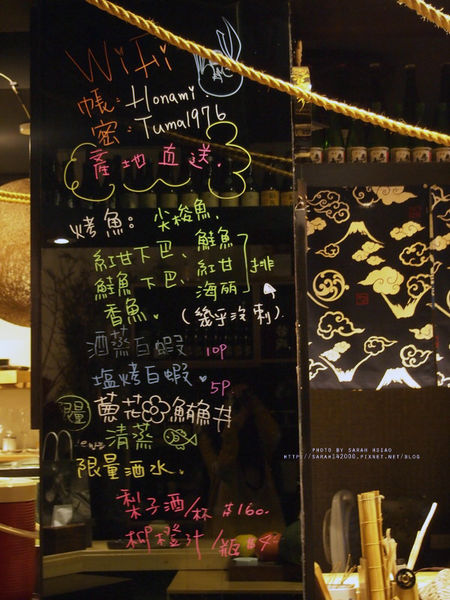 WiFi
帳：Honami
密：Tuma1976
產地直送.
烤魚：尖梭魚、
紅甘下巴、鮭魚
鮭魚下巴、紅甘
香魚. 海麗
排
(幾乎沒刺).
酒蒸白蝦 10P
塩烤白蝦. 5P
限量
蔥花鮪魚丼
清蒸
限量酒水.
梨子酒/杯 $160.
柳橙汁/瓶
PHOTO BY SARAH HSIAO
HTTP://SARAH142000.PIXNET.NET/BLOG